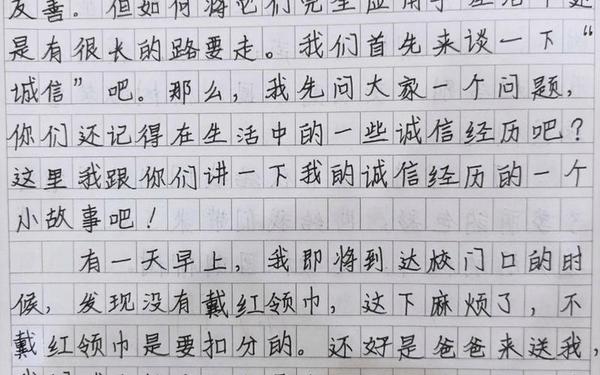 友善。但如何将它们完全应用于生活中还
是有很长的路要走。我们首先来谈一下“
诚信”吧。那么，我先问大家一个问题，
你们还记得在生活中的一些诚信经历吧？
这里我跟你们讲一下我的诚信经历的一个
小故事吧！
有一天早上，我即将到达校门口的时
候，发现没有戴红领巾，这下麻烦了，不
戴红领巾是要扣分的。还好是爸爸来送我，